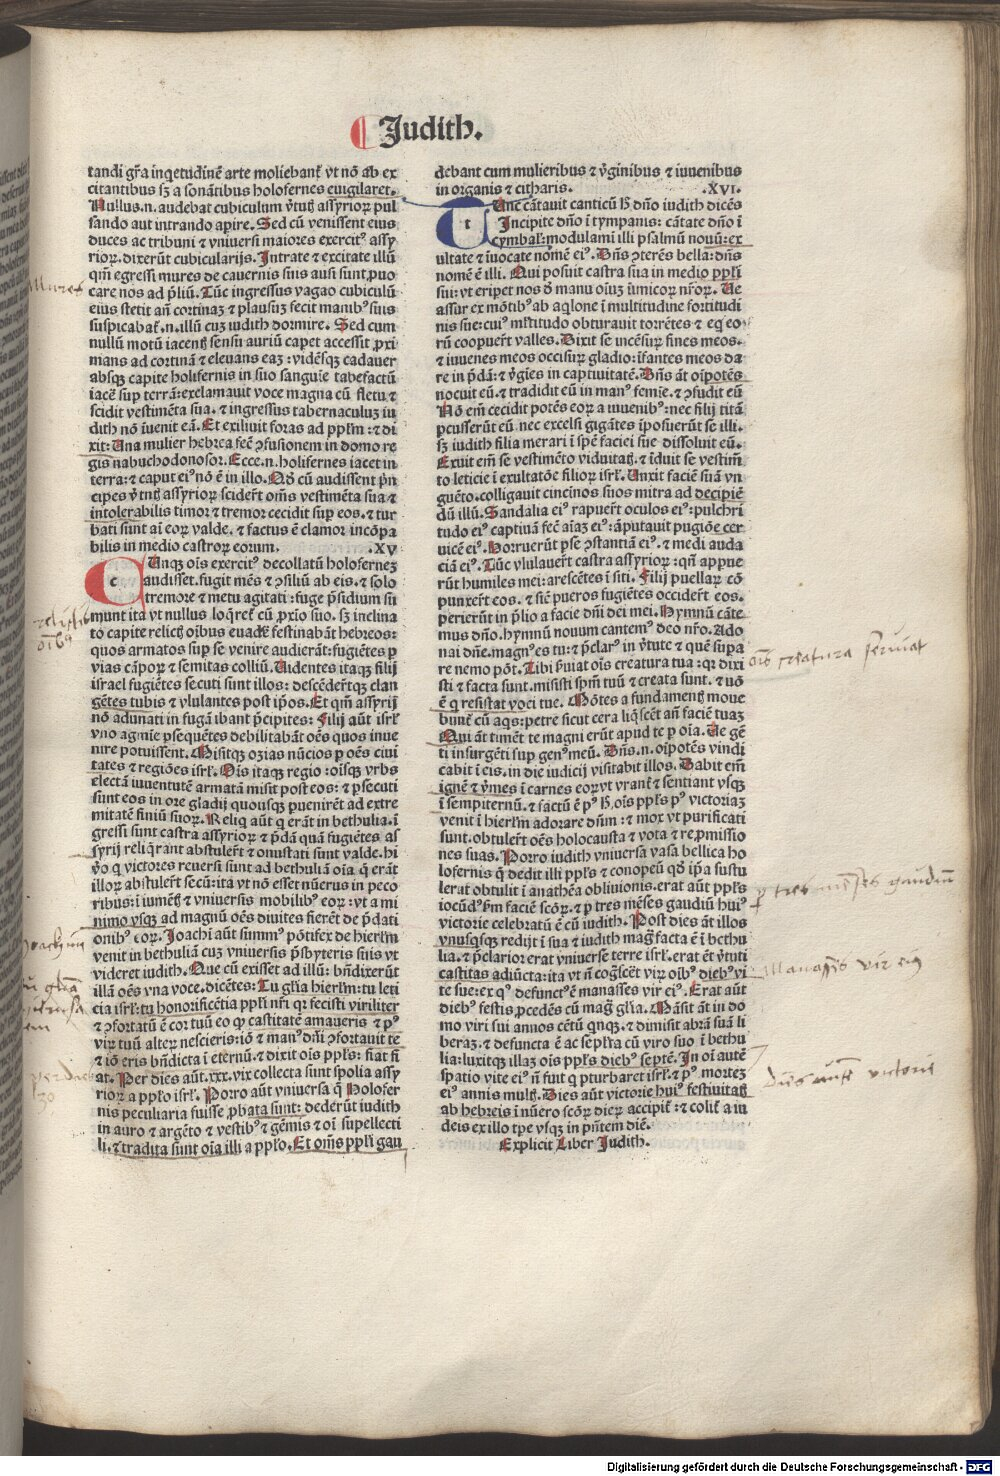 Judith.
tandi gr̃a inq̇etudinē arte moliebanť vt nō ab ex
citantibus sꝫ a sonātibus holofernes euigilaret.
Nullus.n. audebat cubiculum ṽtutꝭ assyrioꝝ pul
sando aut intrando apire. Sed cū venissent eius
duces ac tribuni ⁊ vniuersi maiores exercitꝰ assy
rioꝝ. dixerūt cubicularijs. Intrate ⁊ excitate illū
qm̄ egressi mures de cauernis suis ausi sunt ꝓuo
care nos ad p̄liū. Tūc ingressus vagao cubiculū
eius stetit añ cortinaꝫ ⁊ plausuꝫ fecit manibꝰ suis
suspicabať.n. illū cuꝫ iudith dormire. Sed cum
nullū motū iacentꝭ sensu auriū capet accessit ꝓxi
mans ad cortinā ⁊ eleuans eaꝫ: vidēsqꝫ cadauer
absqꝫ capite holifernis in suo sanguīe tabefactū
iacē sup terrā: exclamauit voce magna cū fletu ⁊
scidit vestimēta sua. ⁊ ingressus tabernaculuꝫ iu
dith nō īuenit eā. Et exiliuit foras ad ppl̄m: ⁊ di
xit: Una mulier hebrea fec̄ ꝯfusionem in domo re
gis nabuchodonosor. Ecce.n. holifernes iacet in
terra: ⁊ caput eiꝰ nō ē in illo. Qď cū audissent p̄n
cipes ṽtutꝭ assyrioꝝ sciderť om̄s vestimēta sua ⁊
intolerabilis timor ⁊ tremor cecidit sup eos. ⁊ tur
bati sunt ai eoꝝ valde. ⁊ factus ē clamor incōpa
bilis in medio castroꝝ eorum. .XV
CUnqꝫ oīs exercitꝰ decollatū holoferneꝫ
audisset. fugit mēs ⁊ ꝯsiliū ab eis. ⁊ solo
tremore ⁊ metu agitati: fuge p̄sidium su
munt ita vt nullus loq̄reť cū ꝓxīo suo. sꝫ inclina
to capite relictꝭ oībus euadē festinabāt hebreos:
quos armatos sup se venire audierāt: fugiētes p
vias cāpoꝝ ⁊ semitas colliū. Uidentes itaqꝫ filij
israel fugiētes secuti sunt illos: descēderťqꝫ clan
gētes tubis ⁊ vlulantes post ip̄os. Et qm̄ assyrij
nō adunati in fugā ibant p̄cipites: Filij aūt isrl̄
vno agmīe ꝑseq̄ntes debilitabāt oēs quos inue
nire potuissent. Misitqꝫ ozias nūcios p oēs ciui
tates ⁊ regiōes isrl̄. Oīs itaqꝫ regio: oīsqꝫ vrbs
electā iuuentutē armatā misit post eos: ⁊ ꝑsecuti
sunt eos in ore gladij quousqꝫ puenirēt ad extre
mitatē finiū suoꝝ. Reliq̇ aūt q̇ erāt in bethulia. ī
gressi sunt castra assyrioꝝ ⁊ p̄dā quā fugiētes as
syrij reliq̄rant abstulerť ⁊ onustati sunt valde. hi
ṽo q̇ victores reuersi sunt ad bethuliā oīa q̄ erāt
illoꝝ abstulerť secū: ita vt nō esset nūerus in peco
ribus: ī iumētꝭ ⁊ vniuersis mobilibꝰ eoꝝ: vt a mi
nimo vsqꝫ ad magnū oēs diuites fierēt de p̄dati
onibꝰ eoꝝ. Joachi aūt summꝰ pōtifex de hierl̄m
venit in bethuliā cuꝫ vniuersis p̄sbyteris suis vt
videret iudith. Que cū exisset ad illū: bn̄dixerūt
illā oēs vna voce. dicētes: Tu gl̄ia hierl̄m: tu leti
cia isrl̄: tu honorificētia ppl̄i nr̄i qꝛ fecisti viriliter
⁊ ꝯfortatū ē cor tuū eo ꝙ castitatē amaueris ⁊ pꝰ
vir̄ tuū alteꝝ nescieris: iō ⁊ manꝰ dn̄i ꝯfortauit te
⁊ iō eris bn̄dicta ī eternū. ⁊ dixit oīs ppl̄s: fiat fi
at. Per dies aūt.xxx. vix collecta sunt spolia assy
rioꝝ a ppl̄o isrl̄. Porro aūt vniuersa q̄ holofer
nis peculiaria fuisse ꝓbata sunt: dederūt iudith
in auro ⁊ argēto ⁊ vestibꝰ ⁊ gēmis ⁊ oī supellecti
li. ⁊ tradita sunt oīa illi a ppl̄o. Et om̄s ppl̄i gau
debant cum mulieribus ⁊ ṽginibus ⁊ iuuenibus
in organis ⁊ citharis. .XVI.
TUnc cātauit canticū ħ dn̄o iudith dicēs
Incipite dn̄o ī tympanis: cātate dn̄o ī
cymbal̄: modulami illi psalmū nouū: ex
ultate ⁊ īuocate nomē eiꝰ. Dn̄s ꝯterēs bella: dn̄s
nomē ē illi. Qui posuit castra sua in medio ppl̄i
sui: vt eripet nos ď manu oīuꝫ īimicoꝝ nr̄oꝝ. Ue
assur ex mōtibꝰ ab aq̇lone ī multitudine fortitudi
nis sue: cuiꝰ ml̄titudo obturauit torrētes ⁊ eq̇ eo
rū coopuerť valles. Dixit se incēsuꝝ fines meos.
⁊ iuuenes meos occisuꝝ gladio: īfantes meos da
re in p̄dā: ⁊ ṽgīes in captiuitatē. Dn̄s āt oīpotēs
nocuit eū. ⁊ tradidit eū in manꝰ femīe. ⁊ ꝯfudit eū
Nō em̄ cecidit potēs eoꝝ a iuuenibꝰ: nec filij titā
ꝑcusserūt eū. nec excelsi gigātes īposuerūt se illi.
sꝫ iudith filia merari ī spē faciei sue dissoluit eū.
Exuit em̄ se vestimēto viduitatꝭ. ⁊ īduit se vestim̄
to leticie ī exultatōe filioꝝ isrl̄. Unxit faciē suā vn
guēto. colligauit cincinos suos mitra ad decipiē
dū illū. Sandalia eiꝰ rapuerť oculos eiꝰ: pulchri
tudo eiꝰ captiuā fec̄ aīaꝫ eiꝰ: āputauit pugiōe cer
uicē eiꝰ. Horruerūt ꝑse ꝯstantiā eiꝰ. ⁊ medi auda
ciā eiꝰ. Tūc vlulauerť castra assyrioꝝ: qn̄ appue
rūt humiles mei: arescētes ī siti. Filij puellaꝝ cō
punxerť eos. ⁊ sic̄ pueros fugiētes occiderť eos.
perierūt in p̄lio a facie dn̄i dei mei. Hymnū cāte
mus dn̄o. hymnū nouum cantemꝰ deo nr̄o. Ado
nai dn̄e. magnꝰ es tu: ⁊ p̄clarꝰ in ṽtute ⁊ quē supa
re nemo pōt. Tibi ẜuiat oīs creatura tua: qꝛ dixi
sti ⁊ facta sunt. misisti spm̄ tuū ⁊ creata sunt. ⁊ nō
ē q̇ resistat voci tue. Mōtes a fundamentꝭ moue
bunť cū aqs: petre sicut cera liq̄scēt añ faciē tuaꝫ
Qui āt timēt te magni erūt apud te p oīa. Ue gē
ti insurgēti sup genꝰ meū. Dn̄s.n. oīpotēs vindi
cabit ī eis. in die iudicij visitabit illos. Dabit em̄
ignē ⁊ ṽmes ī carnes eoꝝ vt vrant̄ ⁊ sentiant vsqꝫ
ī sempiternū. ⁊ factū ē pꝰ ħ. oīs ppl̄s pꝰ victoriaꝫ
venit ī hierl̄m adorare dn̄m: ⁊ mox vt purificati
sunt. obtulerť oēs holocausta ⁊ vota ⁊ reꝓmissio
nes suas. Porro iudith vniuersa vasa bellica ho
lofernis q̄ dedit illi ppl̄s ⁊ conopeū qď ip̄a sustu
lerat obtulit ī anathēa obliuionis. erat aūt ppl̄s
iocūdꝰ ẜm faciē scōꝝ. ⁊ p tres mēses gaudiū huiꝰ
victorie celebratū ē cū iudith. Post dies āt illos
vnusqsqꝫ redijt ī sua ⁊ iudith mag̃ facta ē ī bethu
lia. ⁊ p̄clarior erat vniuerse terre isrl̄. erat ēt ṽtuti
castitas adiūcta: ita vt n̄ cog̃scēt viꝝ oībꝰ diebꝰ vi
te sue: ex qꝰ defunctꝰ ē manasses vir eiꝰ. Erat aūt
diebꝰ festis ꝓcedēs cū mag̃ gl̄ia. Māsit āt in do
mo viri sui annos cētū qnqꝫ. ⁊ dimisit abrā suā li
berāꝫ. ⁊ defuncta ē ac sepl̄ta cū viro suo ī bethu
lia: luxitqꝫ illaꝫ oīs ppl̄s diebꝰ septē. In oī autē
spatio vite eiꝰ n̄ fuit q̇ pturbaret isrl̄. ⁊ pꝰ morteꝫ
eiꝰ annis multꝭ. Dies aūt victorie huiꝰ festiuitatꝭ
ab hebreis ī nūero scōꝝ dieꝝ accipiť: ⁊ coliť a iu
deis ex illo tp̄e vsqꝫ in pn̄tem diē.
Explicit Liber Judith.
Mures
relictis
oībꝰ
oīs creatura seruiat
p tres mēses gaudiū
Manasses vir eiꝰ
Dies autē victorie
Digitalisierung gefördert durch die Deutsche Forschungsgemeinschaft - DFG